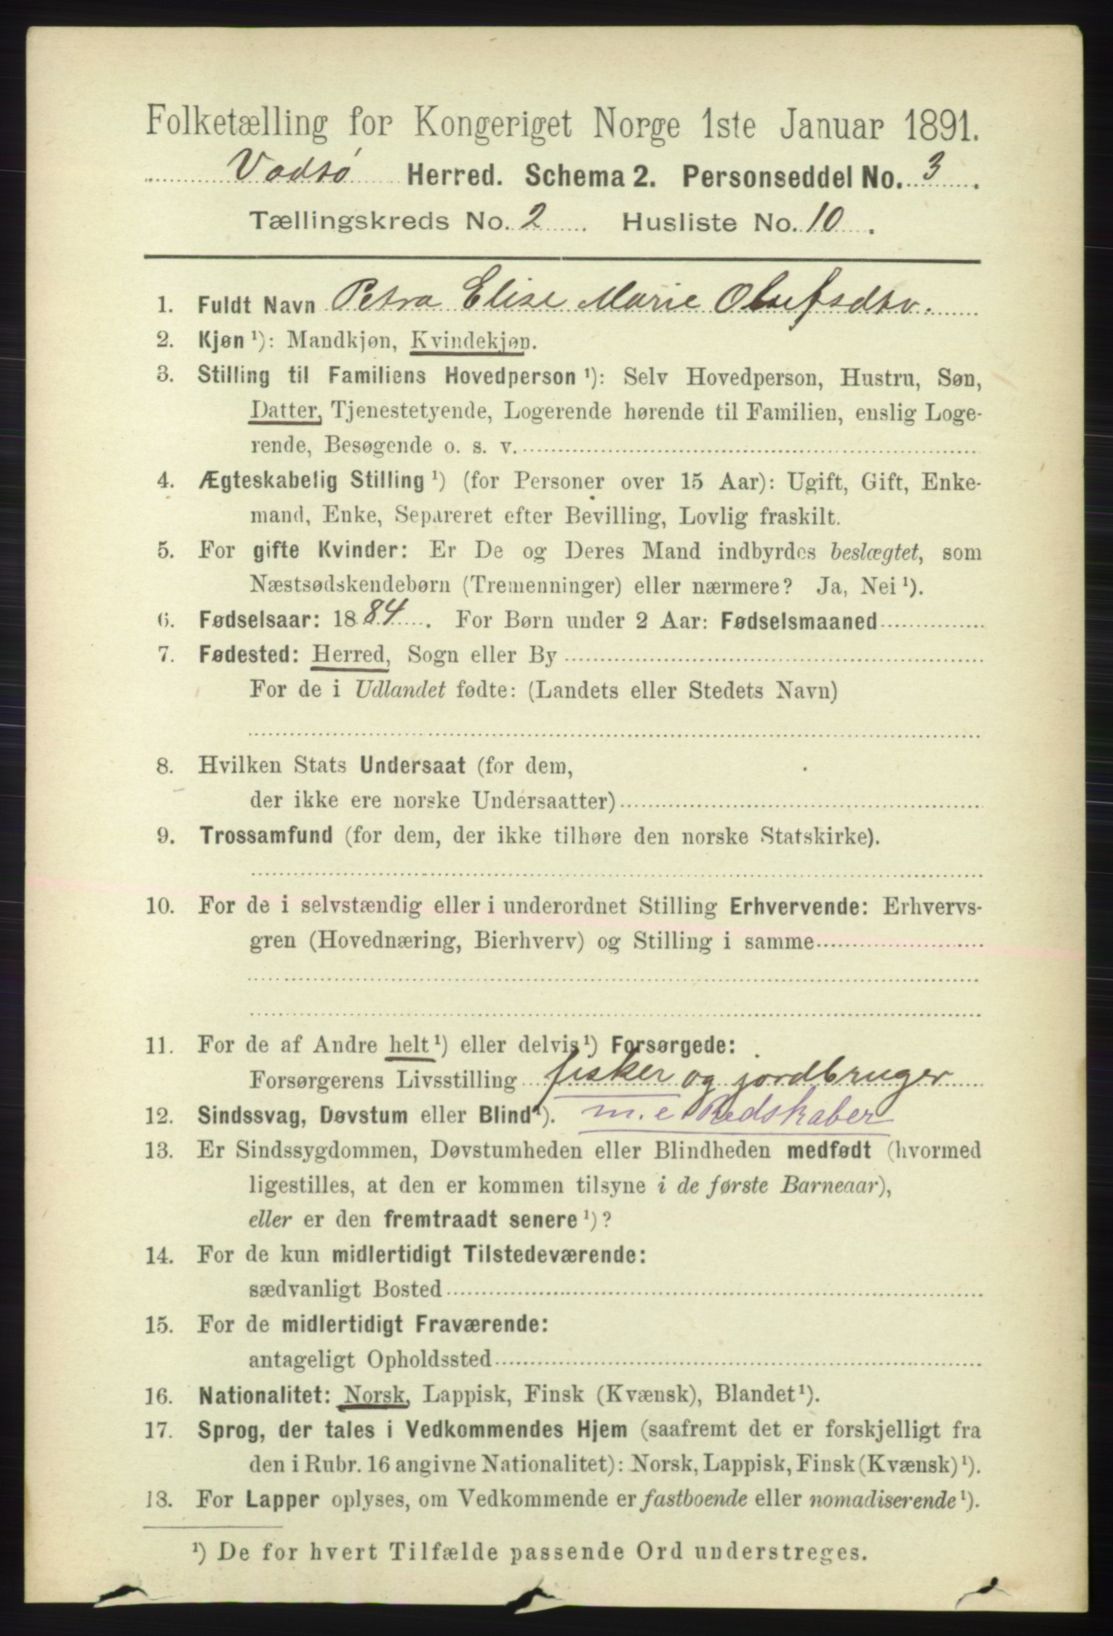 Folketælling for Kongeriget Norge 1ste Januar 1891.
Vadsø Herred. Schema 2. Personseddel No. 3.
Tællingskreds No. 2 Husliste No. 10.
1. Fuldt Navn Petra Elise Marie Olufsdtr.
2. Kjøn ¹): Mandkjøn, Kvindekjøn.
3. Stilling til Familiens Hovedperson ¹): Selv Hovedperson, Hustru, Søn,
Datter, Tjenestetyende, Logerende hørende til Familien, enslig Loge-
rende, Besøgende o. s. v.
4. Ægteskabelig Stilling ¹) (for Personer over 15 Aar): Ugift, Gift, Enke-
mand, Enke, Separeret efter Bevilling, Lovlig fraskilt.
5. For gifte Kvinder: Er De og Deres Mand indbyrdes beslægtet, som
Næstsødskendebørn (Tremenninger) eller nærmere? Ja, Nei ¹).
6. Fødselsaar: 1884. For Børn under 2 Aar: Fødselsmaaned
7. Fødested: Herred, Sogn eller By
For de i Udlandet fødte: (Landets eller Stedets Navn)
8. Hvilken Stats Undersaat (for dem,
der ikke ere norske Undersaatter)
9. Trossamfund (for dem, der ikke tilhøre den norske Statskirke).
10. For de i selvstændig eller i underordnet Stilling Erhvervende: Erhvervs-
gren (Hovednæring, Bierhverv) og Stilling i samme
11. For de af Andre helt ¹) eller delvis ¹) Forsørgede:
Forsørgerens Livsstilling fisker og jordbruger
12. Sindssvag, Døvstum eller Blind ¹). m. e. Redskaber
13. Er Sindssygdommen, Døvstumheden eller Blindheden medfødt (hvormed
ligestilles, at den er kommen tilsyne i de første Barneaar),
eller er den fremtraadt senere ¹)?
14. For de kun midlertidigt Tilstedeværende:
sædvanligt Bosted
15. For de midlertidigt Fraværende:
antageligt Opholdssted
16. Nationalitet: Norsk, Lappisk, Finsk (Kvænsk), Blandet ¹).
17. Sprog, der tales i Vedkommendes Hjem (saafremt det er forskjelligt fra
den i Rubr. 16 angivne Nationalitet): Norsk, Lappisk, Finsk (Kvænsk) ¹).
18. For Lapper oplyses, om Vedkommende er fastboende eller nomadiserende ¹).
¹) De for hvert Tilfælde passende Ord understreges.